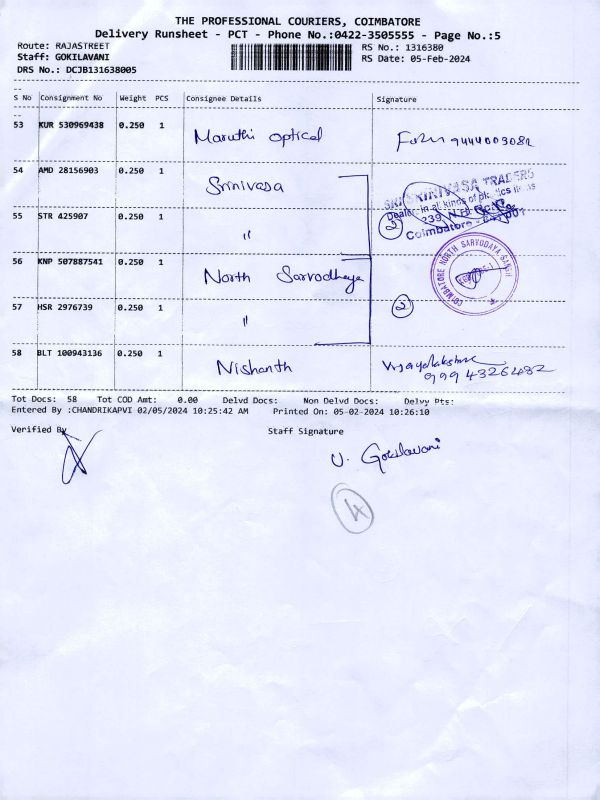 THE PROFESSIONAL COURIERS, COIMBATORE
Delivery Runsheet - PCT - Phone No.:0422-3505555 - Page No.:5
Route: RAJASTREET
RS No.: 1316380
Staff: GOKILAVANI
RS Date: 05-Feb-2024
DRS No.: DCJB131638005
S No Consignment No Weight PCS Consignee Details Signature
53 KUR 530969438 0.250 1 Maruthi optical 9444003082
54 AMD 28156903 0.250 1 Srinivasa
SRI SRINIVASA TRADERS
Dealer in all kinds of
55 STR 425907 0.250 1 " 2
239, N.H.
Coimbatore - 641 001
56 KNP 507887541 0.250 1 North Sarvodhaya
COIMBATORE NORTH SARVODAYA SANGH
57 HSR 2976739 0.250 1 " 2
58 BLT 100943136 0.250 1 Nishanth Vijayalakshmi
9994326482
Tot Docs: 58 Tot COD Amt: 0.00 Delvd Docs: Non Delvd Docs: Delvy Pts:
Entered By :CHANDRIKAPVI 02/05/2024 10:25:42 AM Printed On: 05-02-2024 10:26:10
Verified By Staff Signature
V. Gokilavani
4